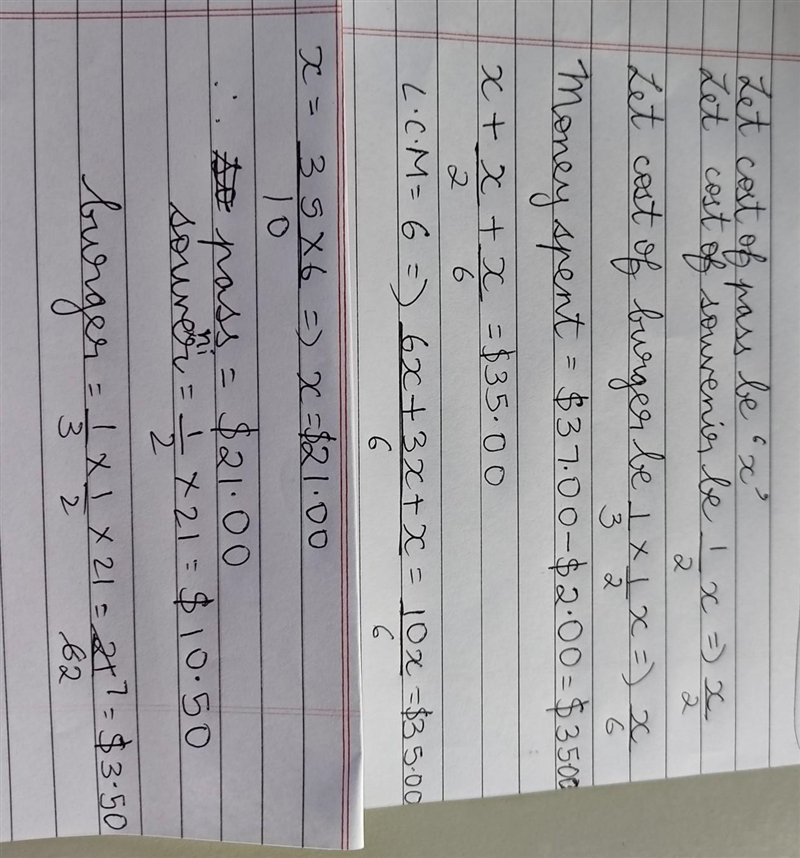 Let cost of pass be "x"
Let cost of souvenir be 1/2 x => x/2
Let cost of burger be 1/3 × 1/2 x => x/6
Money spent = $37.00 - $2.00 = $3500
x + x/2 + x/6 = $35.00
L.C.M = 6 => 6x+3x+x/6 = 10x/6 = $35.00
x = 35×6/10 => x = $21.00
∴ pass = $21.00
souvenir = 1/2 × 21 = $10.50
burger = 1/3 × 1/2 × 21 = 21 7/6 2 = $3.50